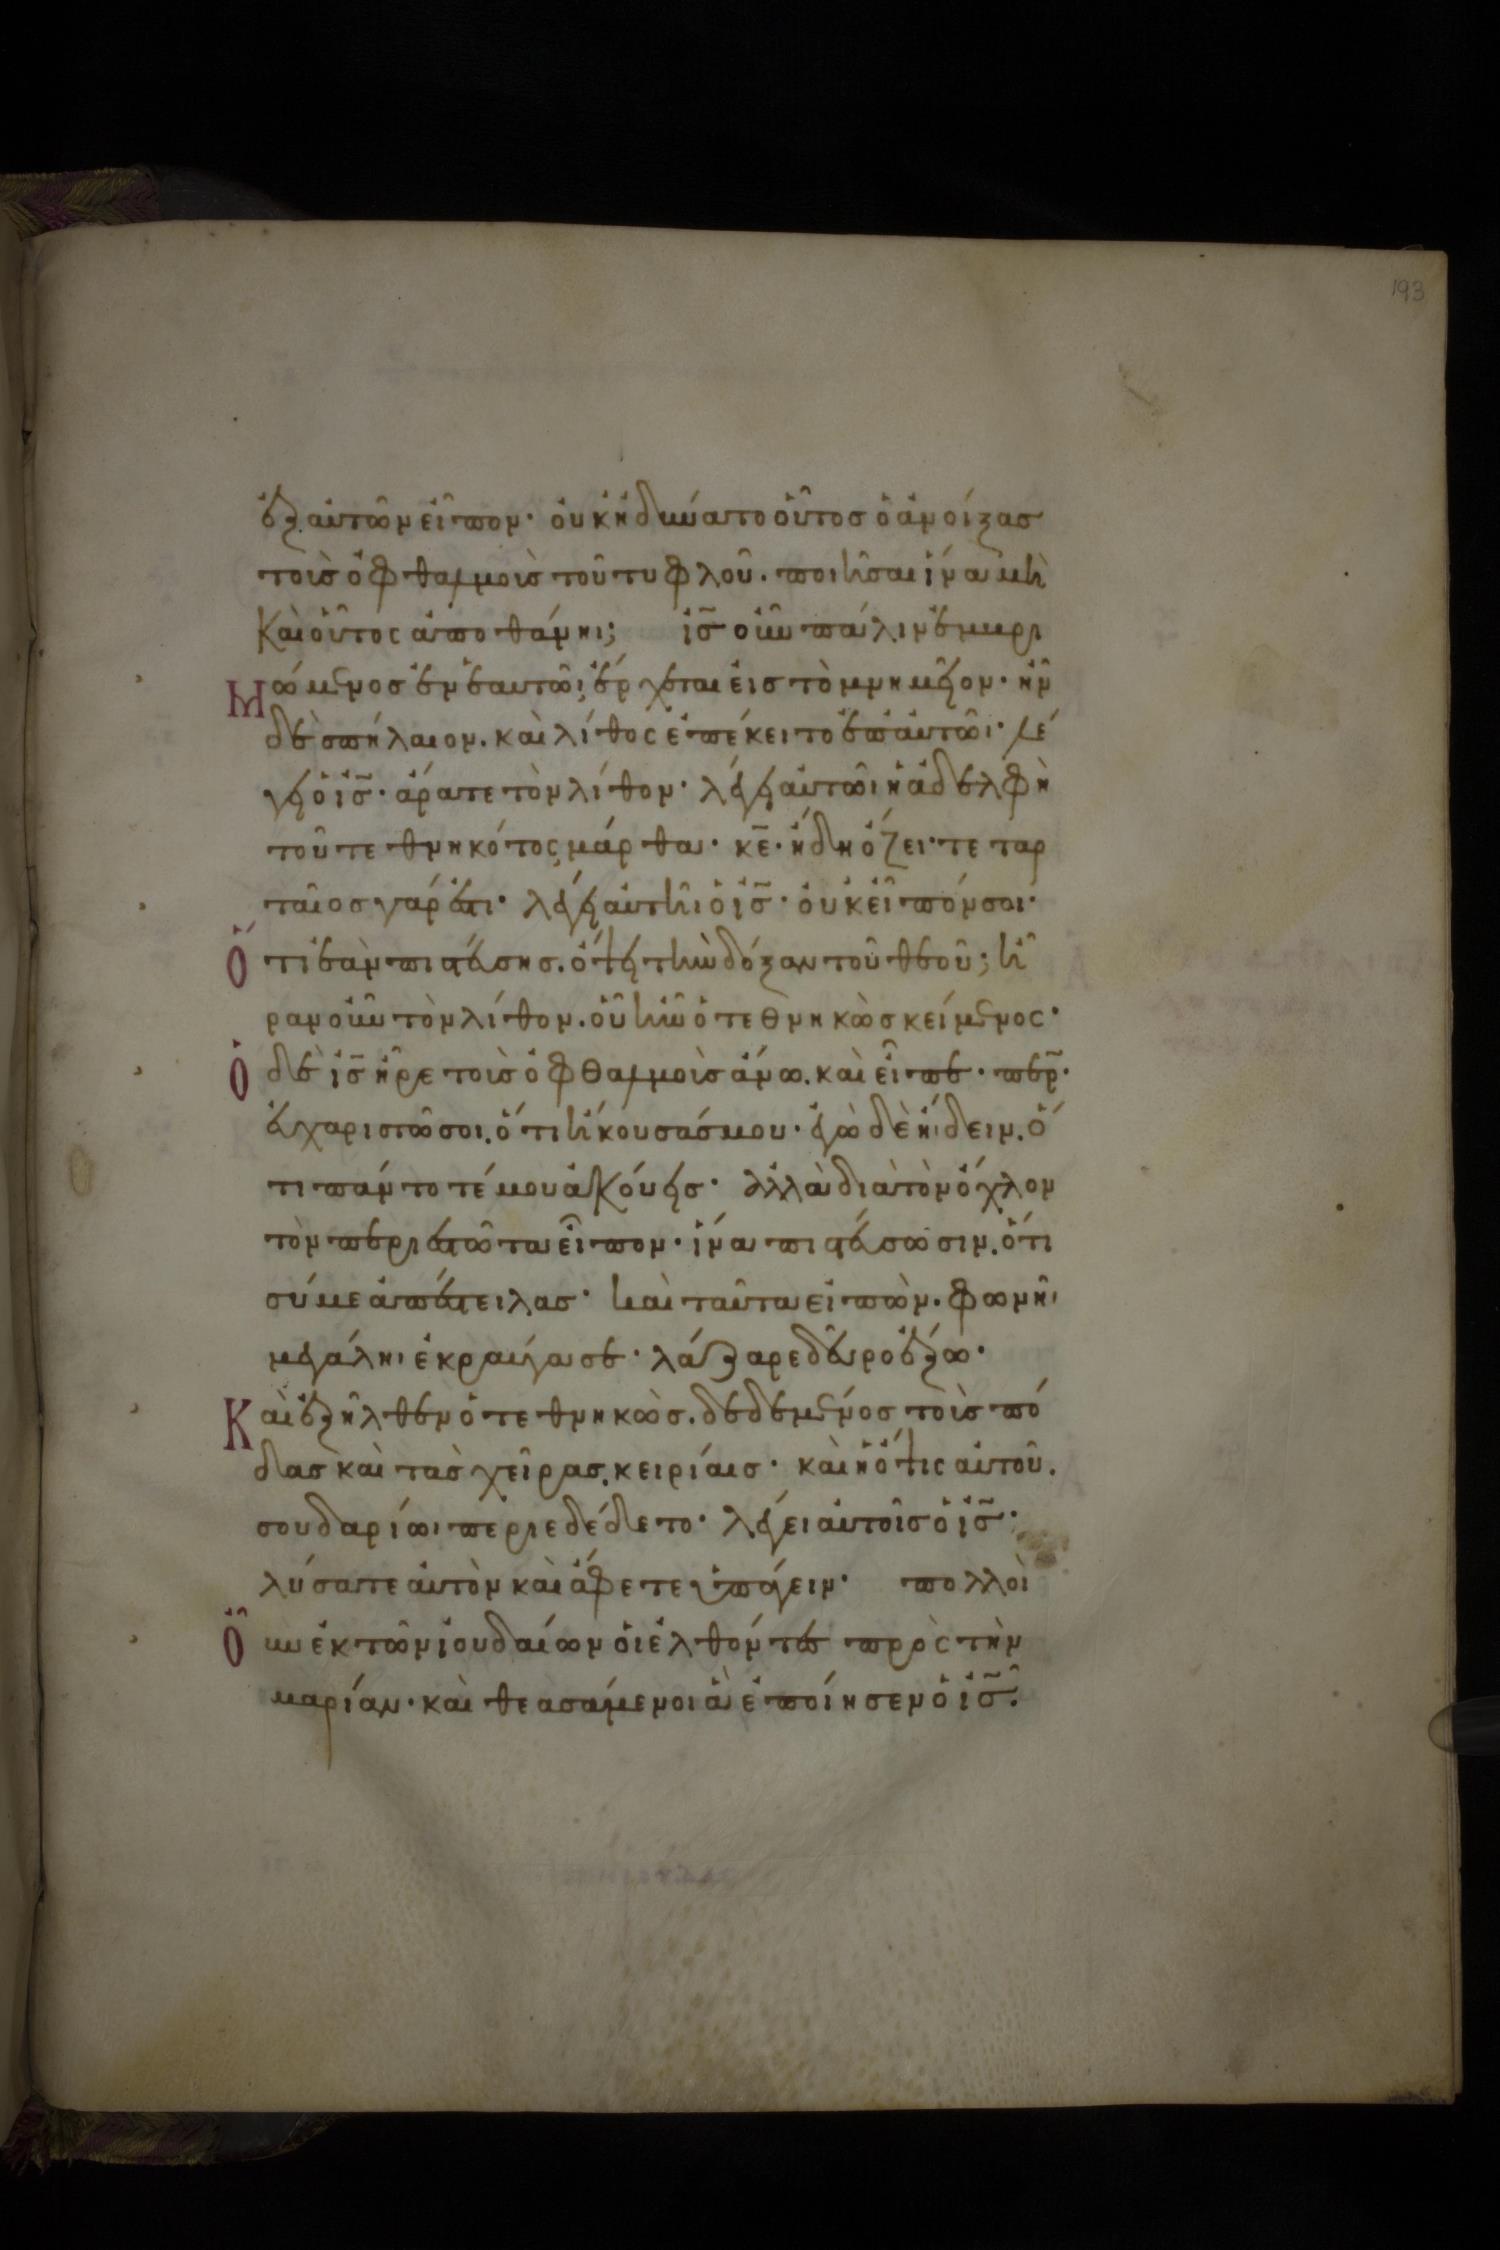 193
ἐξ αὐτῶν εἶπον· οὐκ ἠδύνατο οὗτος ὁ ἀνοίξας
τοὺς ὀφθαλμοὺς τοῦ τυφλοῦ. ποιῆσαι ἵνα μὴ
Καὶ οὗτος ἀποθάνηι; ἰς̄ οὖν πάλιν ἐμβρι
μώμενος ἐν ἑαυτῶι, ἔρχεται εἰς τὸ μνημεῖον· ἦν
δὲ σπήλαιον. καὶ λίθος ἐπέκειτο ἐπ' αὐτῶι· λέ
γει ὁ ἰς̄· ἄρατε τὸν λίθον· λέγει αὐτῶι ἡ ἀδελφὴ
τοῦ τεθνηκότος μάρθα· κε̄· ἤδη ὄζει· τεταρ
ταῖος γάρ ἐστι· λέγει αὐτῆι ὁ ἰς̄· οὐκ εἶπόν σοι·
Ὅτι ἐὰν πιστεύσης. ὄψει τὴν δόξαν τοῦ θεοῦ; ἦ
ραν οὖν τὸν λίθον. οὗ ἦν ὁ τεθνηκὼς κείμενος·
Ὁ δὲ ἰς̄ ἦρε τοὺς ὀφθαλμοὺς ἄνω. καὶ εἶπε· περ̄·
εὐχαριστῶ σοι. ὅτι ἤκουσάς μου· ἐγὼ δὲ ἤιδειν. ὅ
τι πάντοτέ μου ἀκούεις· ἀλλὰ διὰ τὸν ὄχλον
τὸν περιεστῶτα εἶπον· ἵνα πιστεύσωσιν. ὅτι
σύ με ἀπέστειλας· Καὶ ταῦτα εἰπὼν. φωνῆι
μεγάληι ἐκραύγασε· λάζαρε δεῦρο ἔξω·
Καὶ ἐξῆλθεν ὁ τεθνηκὼς. δεδεμένος τοὺς πό
δας καὶ τὰς χεῖρας. κειρίαις· καὶ ἡ ὄψις αὐτοῦ.
σουδαρίωι περιεδέδετο· λέγει αὐτοῖς ὁ ἰς̄·
λύσατε αὐτὸν καὶ ἄφετε ὑπάγειν· πολλοὶ
Οὖν ἐκ τῶν ἰουδαίων οἱ ἐλθόντες πρὸς τὴν
μαρίαν· καὶ θεασάμενοι ἃ ἐποίησεν ὁ ἰς̄·